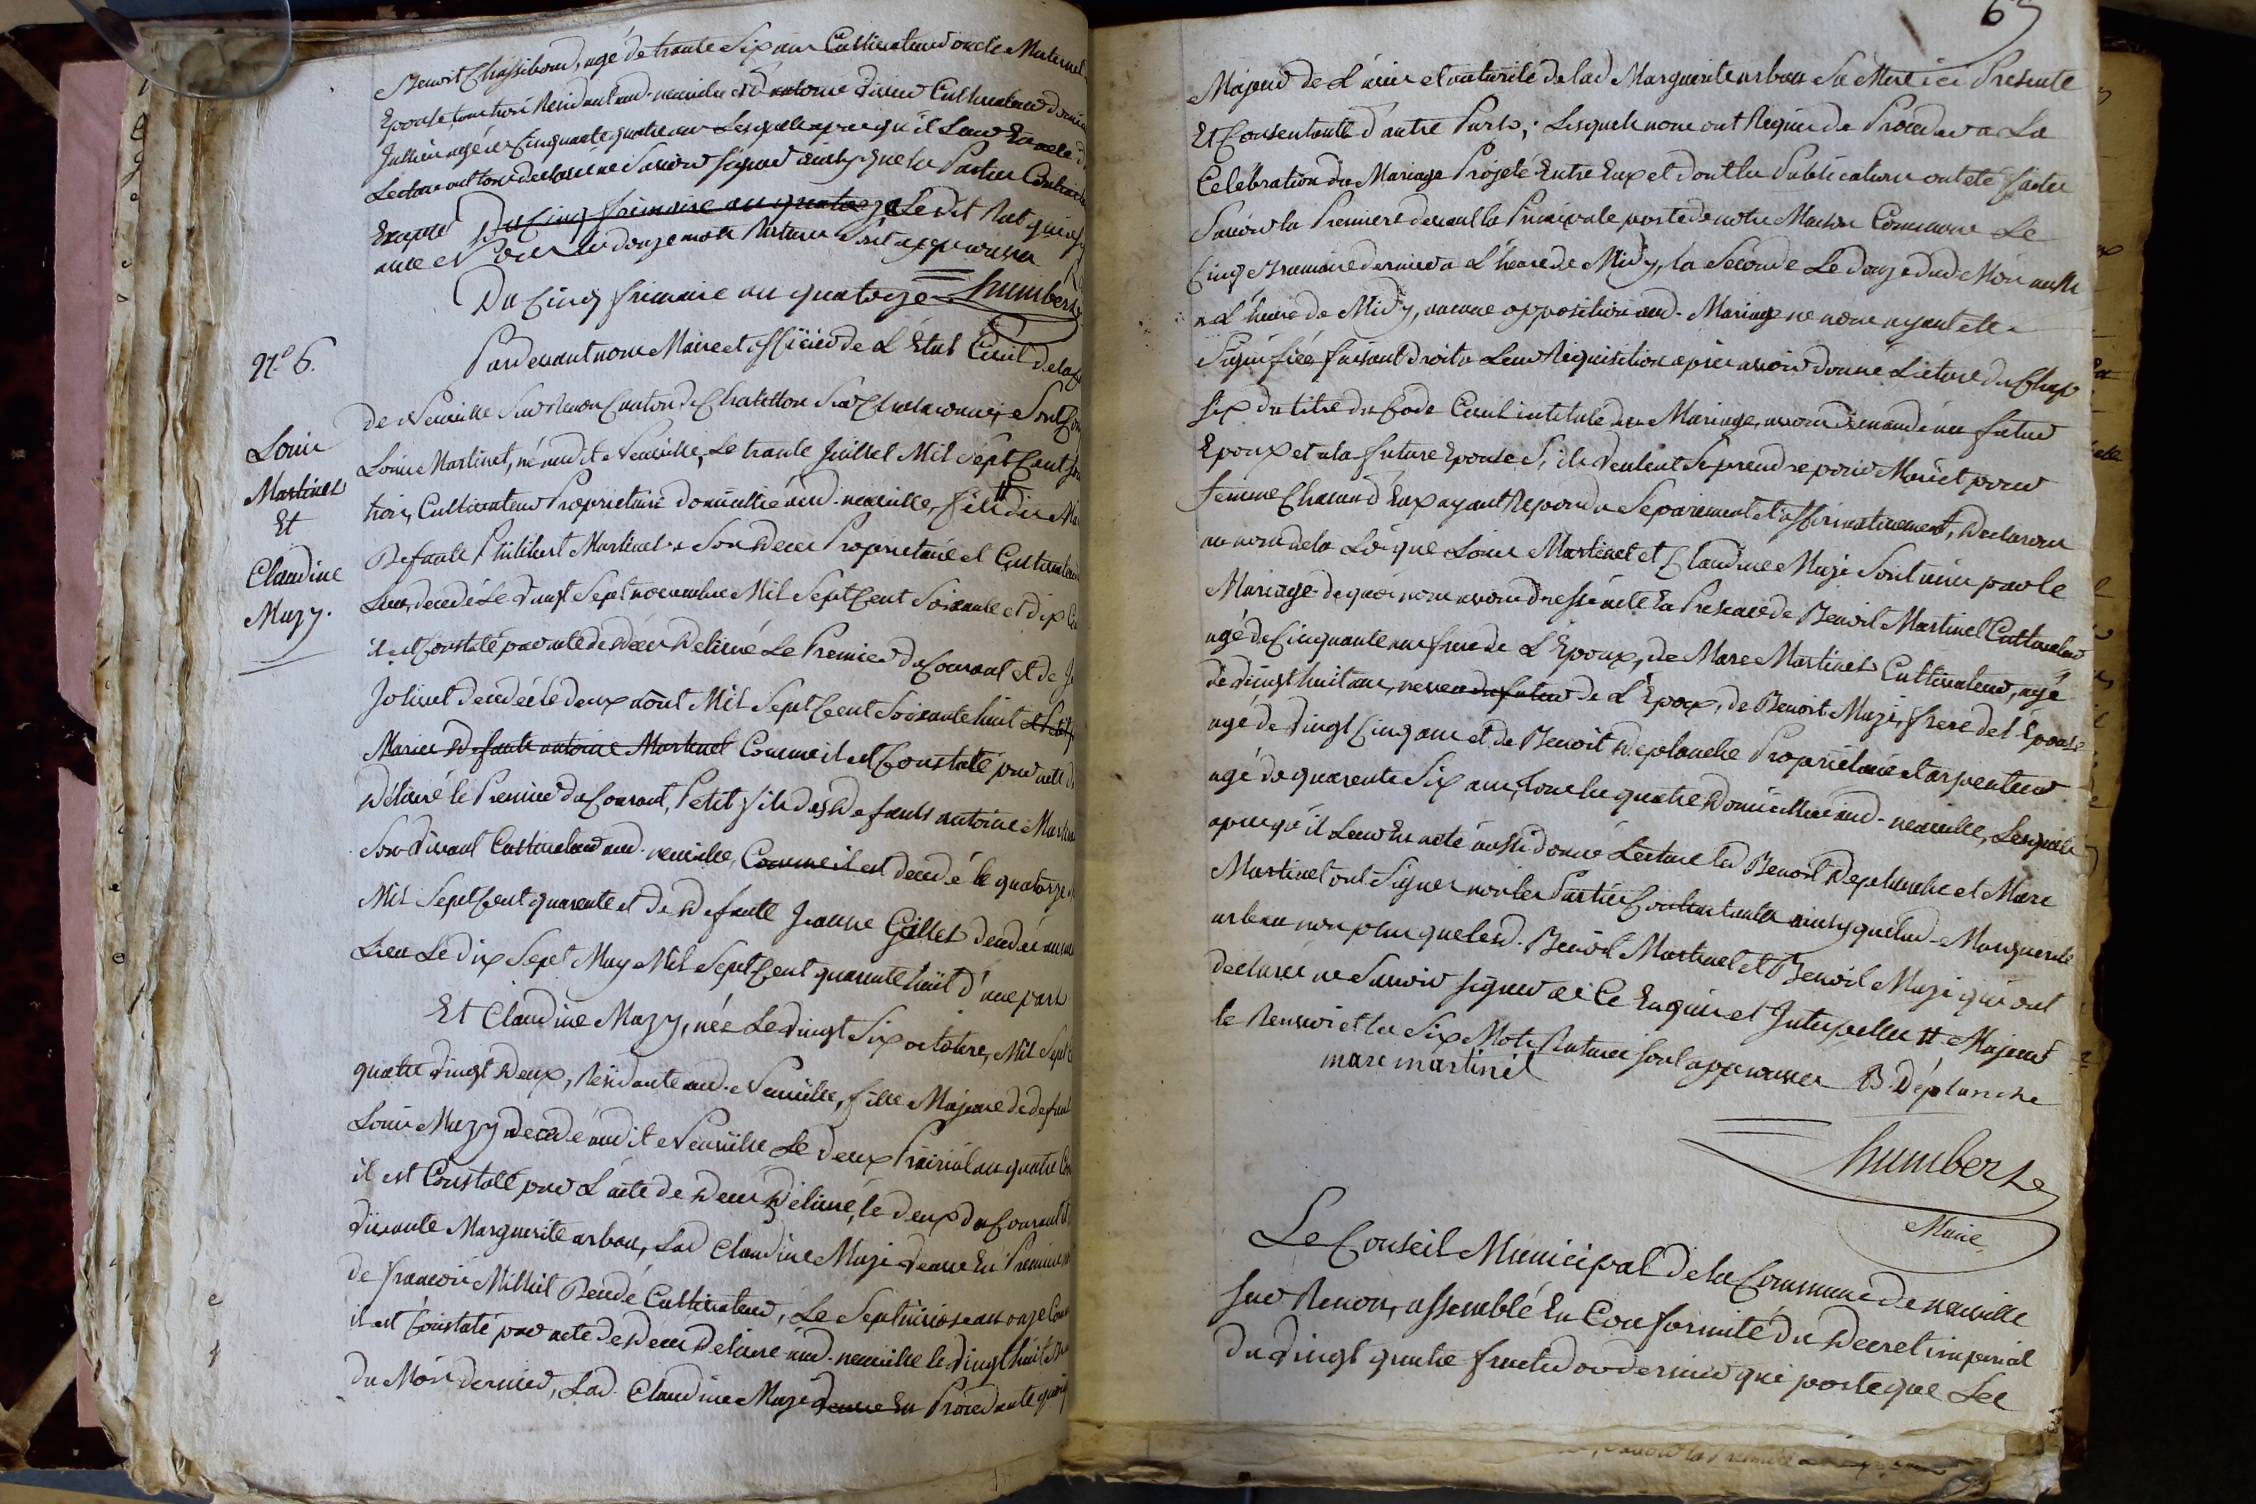 Benoit Chassiboud, agé de trante Six ans Cultivateur oncle Maternel
Epouse, tous trois Residant aud. neuville et d'antoine Divieu Cultivateur
Jullien agé de Cinquante quatre ans Lesquels apres qu'il Leur En a été
Lecture ont tous declaré ne Savoir signer ainsy que les Parties Contractantes
Excepté Du Cinq frimaire an quatorze Ledit Rat qui a
avec Nous les douze mots Raturés Sont approuvés
Du Cinq frimaire an quatorze humbert
N.° 6.
Pardevant nous Maire et officier de L'Etat Civil de la
de Neuville Sur Renon Canton de Chatillon Sur Chalaronne, Sont
Louis Martinet, né audit Neuville, Le trante Juillet Mil Sept Cent
trois, Cultivateur Proprietaire domicillié aud. neuville, fils
Louis
Martinet
Et
Claudine
Muzy.
Defunt Philibert Martinet à Son Deces Proprietaire et Cultivateur
Lieu, decedé Le Vingt Sept novembre Mil Sept Cent Soixante et dix
il est Constaté par acte de Deces Delivré Le Premier du Courant et de
Jolivet decedée le deux aôut Mil Sept Cent Soixante huit et Petit
Maries Defunt antoine Martinet Comme il est Constaté par acte
Delivré le Premier du Courant, Petit fils des Defunts antoine
Son Vivant Cultivateur aud. neuville, Comme il est decedé le quatorze
Mil Sept Cent quarente et de Defunte Jeanne Gillet decedée
Lieu Le dix Sept May Mil Sept Cent quarente huit d'une part
Et Claudine Muzy, née Le Vingt Six octobre, Mil Sept
quatre Vingt Deux, Residante aud. Neuville, fille Majeure de defunt
Louis Muzy decedé audit Neuville Le deux Prairial an quatre
il est Constaté par L'acte de Deces Delivré, le deux du Courant
Vivante Marguerite arbau, Lad Claudine Muzi Veuve En Premiere
de francois Milliet Cultivateur, Le Sept nivose an onze
il est Constaté par acte de Deces Delivré aud. neuville le Vingt huit
du Mois dernier, Lad. Claudine Muzi Veuve En Procedante
Majeur de L'avis et autorité de lad Marguerite arbau Sa Mere ici Presente
Et Consentante d'autre Part; Lesquels nous ont Requis de Proceder a La
Celebration du Mariage Projeté Entre Eux et dont les Publications ont été faites
Savoir la Premiere devant la Principale porte de notre Maison Commune Le
Cinq Brumaire dernier a L'heure de Midy, la Seconde Le douze dud Mois aussi
a L'heure de Midy, aucune opposition aud. Mariage ne nous ayant été
Signifiée faisant droit a Leur Requisition apres avoir donné Lecture du Chap
six du titre du Code Civil intitulé du Mariage, avons demandé au futur
Epoux et a la future Epouse S'ils Veulent Se prendre pour Mari et pour
femme Chacun d'Eux ayant Repondu Separement et affirmativement, Declarons
au nom de la Loi que Louis Martinet et Claudine Muzi Sont unis par le
Mariage de quoi nous avons dressé acte En Presence de Benoit Martinet Cultivateur
agé de Cinquante ans frere de L'Epoux, de Marc Martinet Cultivateur, agé
de Vingt huit ans, neveu du futur de L'Epoux, de Benoit Muzi, frere de l'Epouse
agé de Vingt Cinq ans et de Benoit Deplanche Proprietaire et arpenteur
agé de quarente Six ans, tous les quatre Domicilliés aud. neuville, Lesquels
apres qu'il Leur En a été aussi donné Lecture Led Benoit Deplanche et Marc
Martinet ont Signé non les Parties Contractantes ainsy que lad. Marguerite
arbau non plus que lesd. Benoit Martinet et Benoit Muzi qui ont
declaré ne Savoir signer de Ce Enquis et Interpellés # Majeur
le Renvoi et les Six Mots Raturés sont approuvés B. Déplanche
marc martinet
humbert
Maire
Le Conseil Municipal de la Commune de neuville
sur Renon, assemblé En Conformité du Decret imperial
du Vingt quatre fructidor dernier qui porte que Les